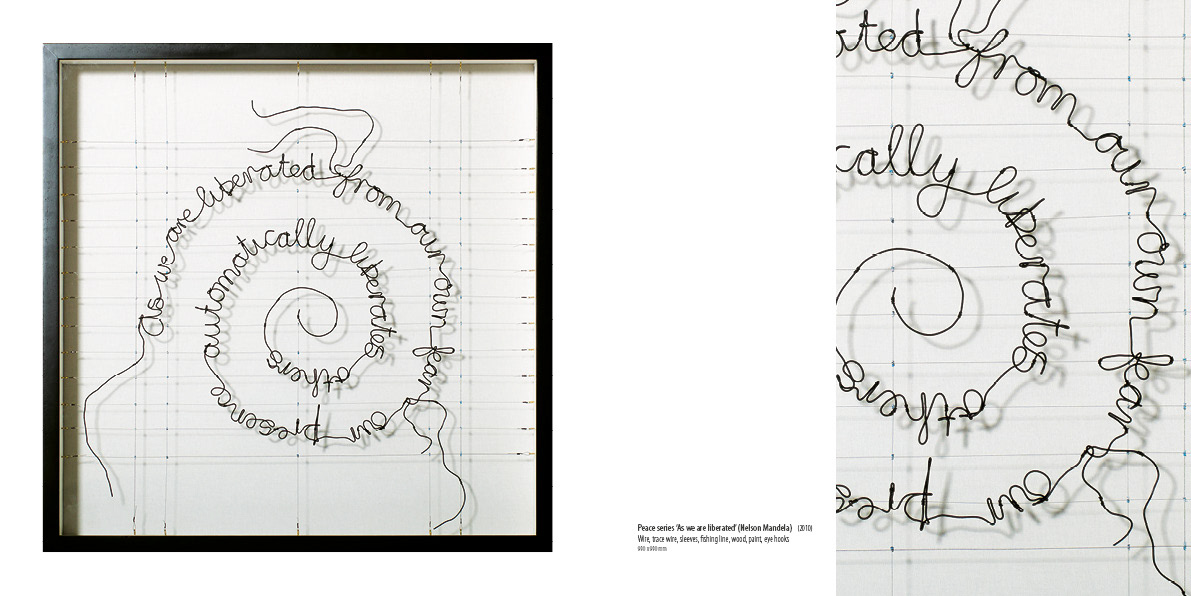 as we are liberated from our own fear our presence automatically liberates others
Peace series 'As we are liberated' (Nelson Mandela) (2010)
Wire, trace wire, sleeves, fishing line, wood, paint, eye hooks
ated from our own fear
our pres
cally liberates others